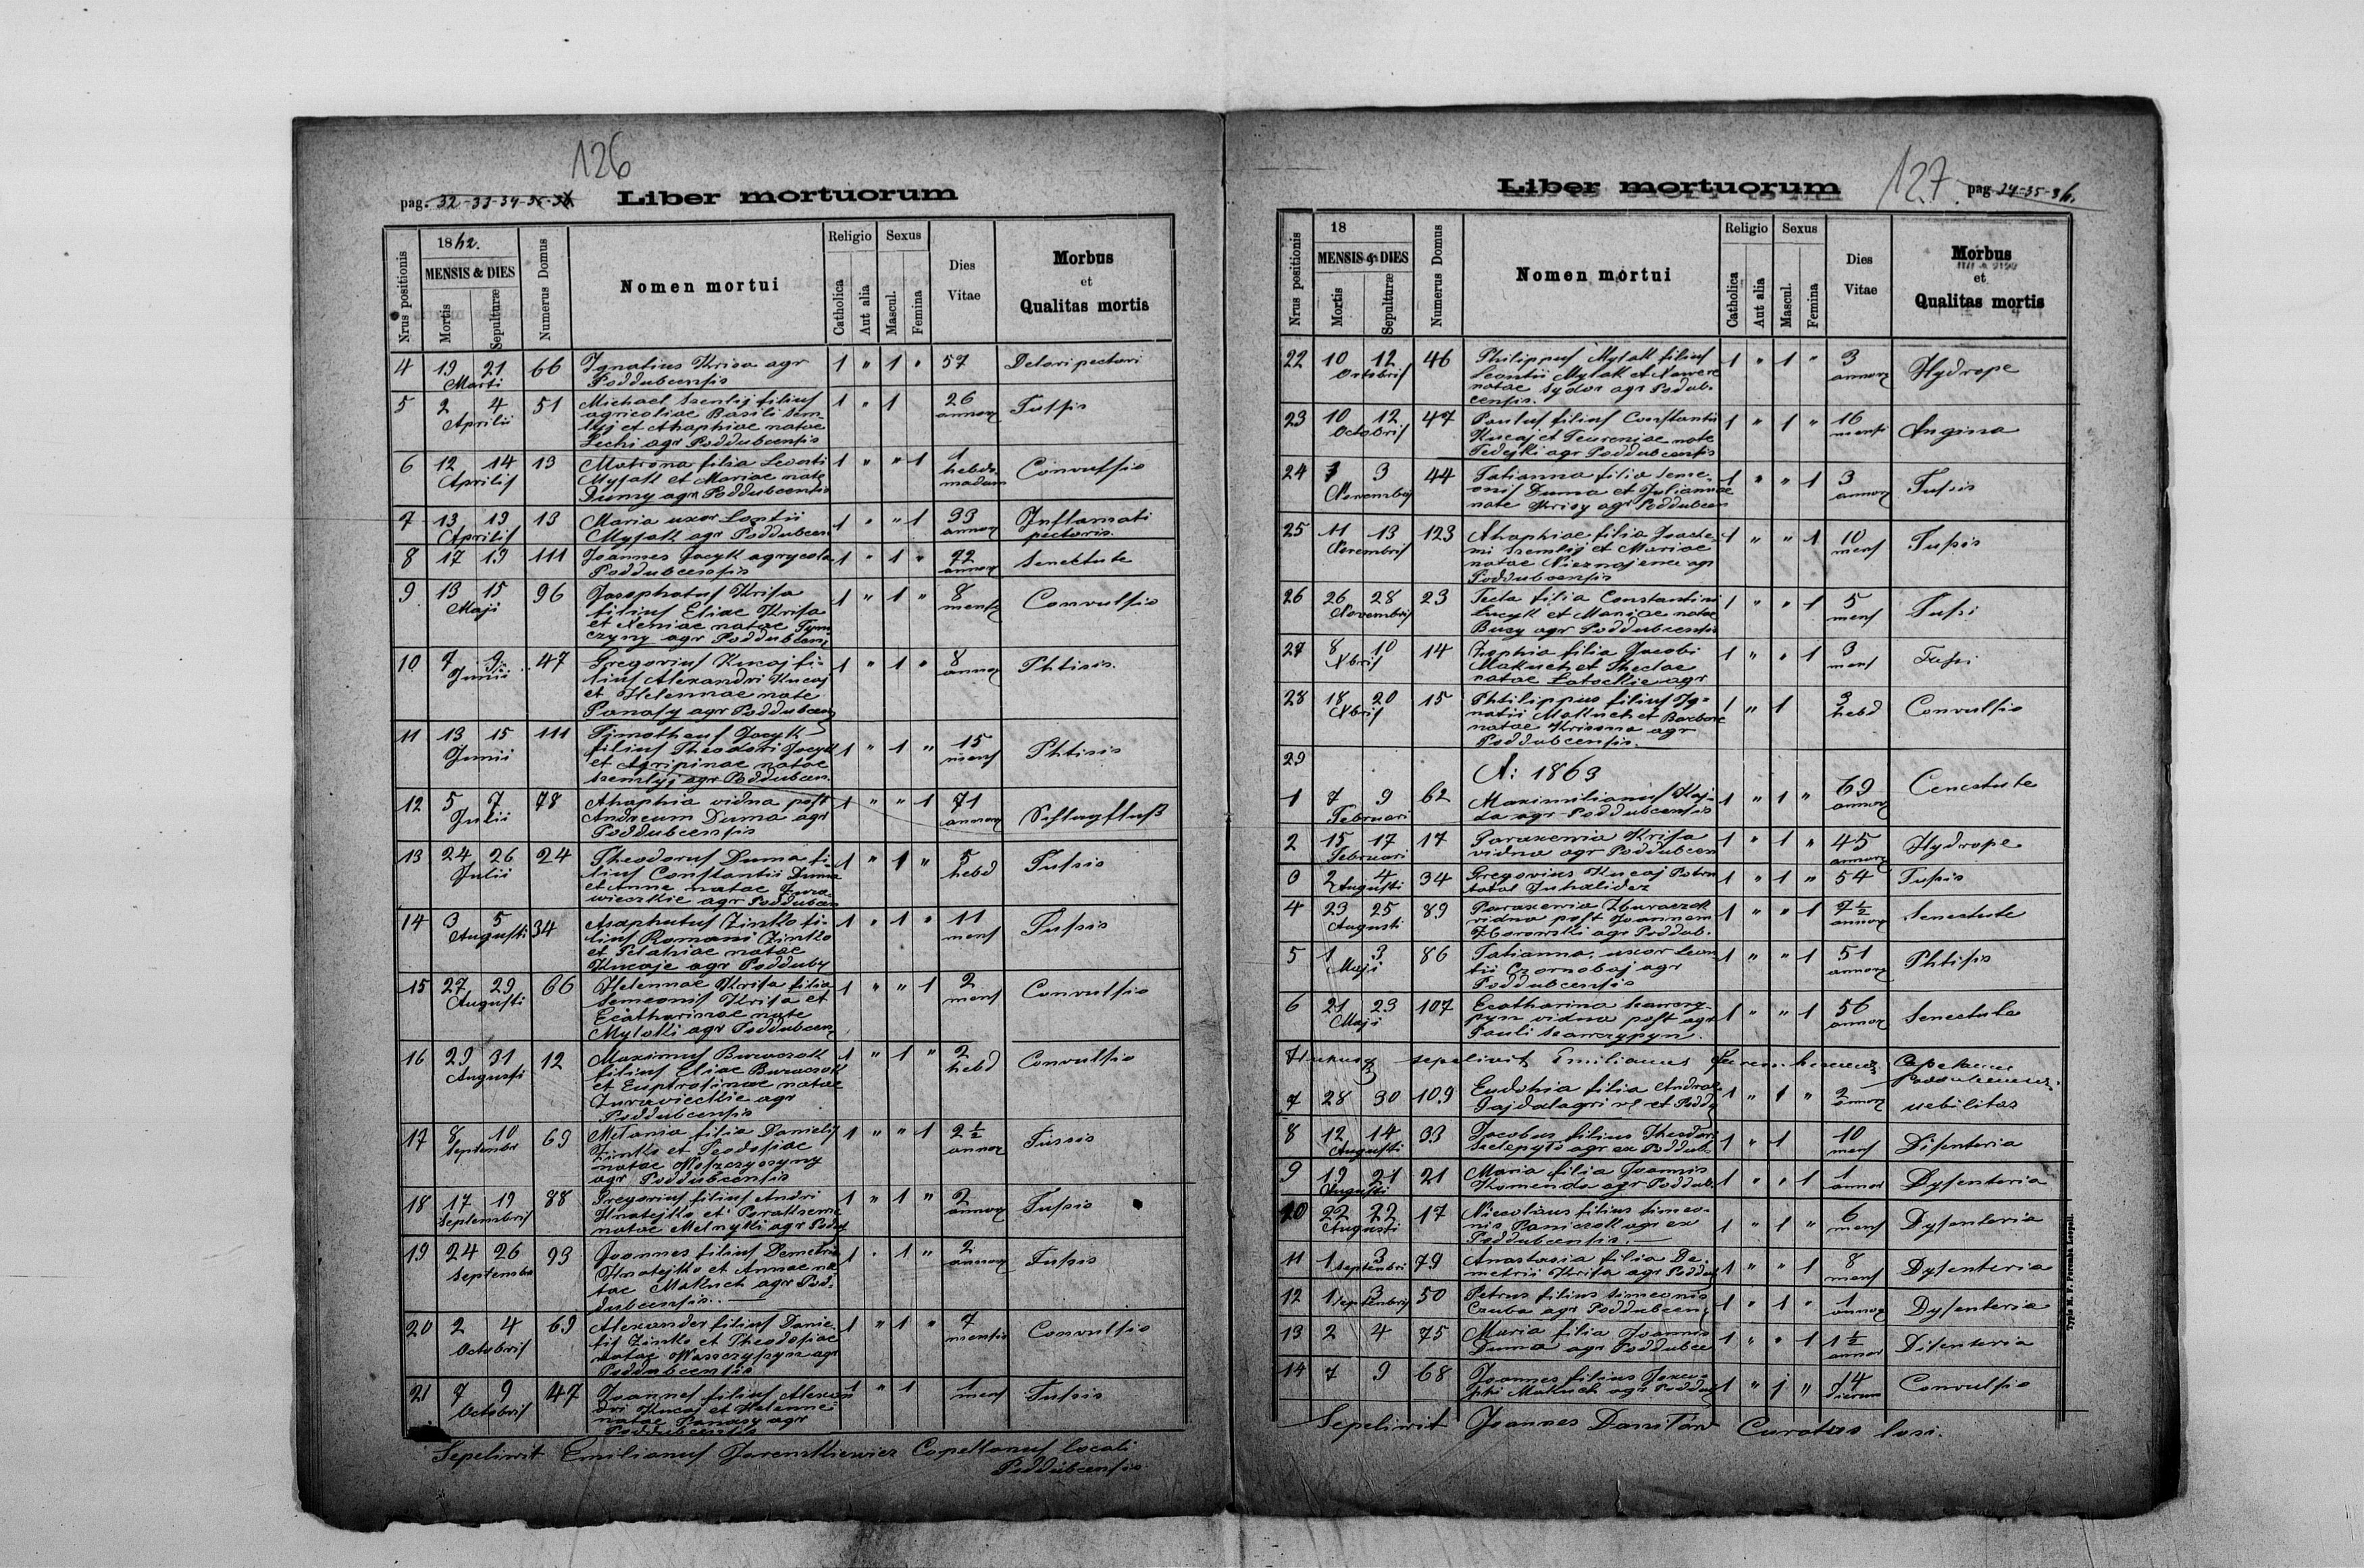 126
pag. 32-33-34-35-36 Liber mortuorum
Nrus positionis
1862.
MENSIS & DIES
Mortis
Sepulturæ
Numerus Domus
Nomen mortui
Religio
Catholica
Aut alia
Sexus
Mascul.
Femina
Dies
Vitae
Morbus
et
Qualitas mortis
4 19 21 66 Ignatius Krisa agr 1 " 1 " 57 Dolori pectori
Marti Poddubcensis
5 2 4 51 Michael Szemlij filius 1 " 1 26 Tussis
Aprilii agricoliae Basili Szem annorz
lyj et Ahaphiae natae
Lechi agr Poddubcensis
6 12 14 13 Matrona filia Leonti 1 " " 1 1 Convulsio
Aprilis Mysak et Mariae nate hebdo
Dumy agr Poddubcensis madam
7 13 19 13 Maria uxor Lontii 1 " " 1 33 Inflamati
Aprilis Mysak agr Poddubcen annorz pectoris.
8 17 19 111 Joannes Jacyk agrycola 1 " 1 " 72 Senektute
Poddubcensis annorz
9 13 15 96 Josaphatus Krisa 1 " 1 " 8 Convulsio
Maji filius Eliae Krisa
et Xeniae natae Tym
czyny agr Poddubcens
10 7 9 47 Gregorius Kucaj fi- 1 " 1 " 8 Phtisis.
Junii lius Alexandri Kucaj annorz
et Helennae nate
Panasy agr Poddubcens
11 13 15 111 Tymotheus Jacyk
Junii filius Theodori Jacyk 1 " 1 " 15 Phtisis
et Agripinae natae mens
Szemlyj agr Poddubcen.
12 5 7 78 Ahaphia vidua post 1 " " 1 71 Schlagfluß
Julii Andreum Duma agr annorz
Poddubcensis
13 24 26 24 Theodorus Duma fi- 1 " 1 " 5 Tussis
Julii lius Constantii Duma hebd
et Anne natae Zura-
wieckie agr Poddubcen
14 3 5 34 Asaphatus Zinko fi- 1 " 1 " 11 Tussis
Augusti lius Romani Zinko mens
et Pelahiae natae
Kucaje agr Podduby
15 27 29 66 Helennae Krisa filia 1 " " 1 2 Convulsio
Augusti Semeonis Krisa et mens
Ecatharinae nate
Myloki agr Poddubcen
16 29 31 12 Maximus Buraczok 1 " 1 " 2 Convulsio
Augusti filius Eliae Buraczok hebd
et Euphrosinae natae
Zurawieckie agr
Poddubcensis
17 8 10 69 Melania filia Danielis 1 " " 1 2½ Tussis
Septembr Zinko et Teodosiae annor
natae
agr Poddubcensis
18 17 19 88 Gregorius filius Andri 1 " 1 " 2 Tussis
Septembris Hnatejko et Parakseme annorz
natae Melnykli agr Poddub
19 24 26 93 Joannes filius Demetrii 1 . 1 " 2 Tussis
Septembr Hnatejko et Annae na annorz
tae Makuch agr Pod-
dubcensis.
20 2 4 69 Alexander filius Danie- 1 " 1 " 7 Convulsio
Octobris lis Zinko et Theodosiae mensis
natae Wasczyszyn agr
Poddubcensis
21 7 9 47 Joannes filius Alexan 1 " 1 1 Tussis
Octobris dri Kucaj et Helenne mens
natae Panasy agr
Poddubcensis
Sepelivit Emilianus Jaremkiewicz Capellanus locali
Poddubcensis
127
Liber mortuorum pag 34-35-36.
Nrus positionis
18
MENSIS & DIES
Mortis
Sepulturæ
Numerus Domus
Nomen mortui
Religio
Catholica
Aut alia
Sexus
Mascul.
Femina
Dies
Vitae
Morbus
et
Qualitas mortis
22 10 12 46 Philippus Mysak filius 1 " 1 " 3 Hydrope
Octobris Leontii Mysak et annorz
natae Sydor agr Podub-
censis.
23 10 12 47 Paulus filius Constantii 1 " 1 " 16 Angina
Octobris Kucaj et nate mensi
Fedejki agr Poddubcensis
24 1 3 44 Tatianna filia Seme- 1 " " 1 3 Tussis
Novembrs onis Duma et Juliannae annorz
nate Krisy agr Poddubcen
25 11 13 123 Ahaphiae filia Joache- 1 " " 1 10 Tussis
Novembris mi Szemlij et Mariae mens
natae agr
Poddubcensis
26 26 28 23 Tecla filia Constantini 1 " " 1 5 Tussi
Novembris et Mariae natae mens
agr Poddubcensis
27 8 10 14 Zophia filia Jacobi 1 " " 1 3 Tussi
Xbris Makuch et Theclae mens
natae agr
28 18 20 15 Philippus filius Ig- 1 " 1 3 Convulsio
Xbris natii Makuch et Barbare hebd
natae agr
Poddubcensis.
29
A: 1863
1 7 9 62 Maximilianus Haj- 1 " 1 " 69 Cenectute
Februari da agr Poddubcensis annorz
2 15 17 17 Paraxemia Krisa 1 " 1 " 45 Hydrope
Februari vidua agr Poddubcen annorz
3 2 4 34 Gregorius Kucaj 1 " 1 " 54 Tussis
Augusti
4 23 25 89 Paraxemia 1 " " 1 7½ Senectute
Augusti vidua post Joannem annorz
Zborowski agr Poddub.
5 1 3 86 Tatianna, uxor Leon 1 " " 1 51 Phtisis
Maji tii Czornobaj agr annorz
Poddubcensis
6 21 23 107 Ecatharina 1 " " 1 56 Senectute
Maji pyn vidua post agr annor
Pauli
sepelivit Emilianus Capelanus
7 28 30 109 Eudokia filia 1 " 1 " 2 uebilitas
annorz
8 12 14 33 Jacobus filius Theodori 1 " 1 10 Disenteria
Augusti agr ex Poddub mens
9 19 21 21 Maria filia Joannis 1 " " 1 1 Dysenteria
Augusti Komenda agr Poddub. annor
10 22 22 17 Nicolaus filius Simeo- 1 " 1 " 6 Dysenteria
Augusti nis Paniczok agr ex mens
Poddubcensis.
11 1 3 79 Anastasia filia De- 1 " " 1 8 Dysenteria
Septembri metrii Krisa agr Poddub mens
12 1 3 50 Petrus filius Simeonis 1 " 1 " 1 Dysenteria
Septembris Czuba agr Poddubcen annorz
13 2 4 75 Maria filia Joannis 1 " " 1 1½ Disenteria
Duma agr Poddubce annor
14 7 9 68 Joannes filius Jose- 1 " 1 " 14 Convulsio
phi Makuch agr Poddub dierum
Sepelivit Joannes Daniłow Curatus loci.
Typis M. F. Poremba Leopoli.